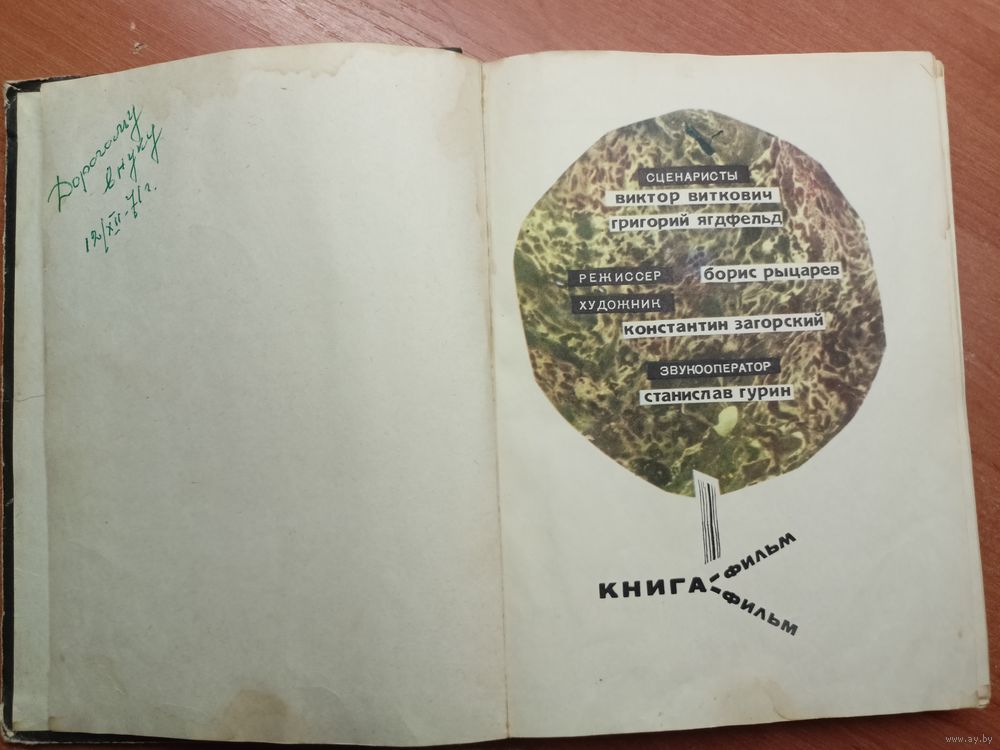 Дорогому
внуку
12/XII-71г.
СЦЕНАРИСТЫ
виктор виткович
григорий ягдфельд
РЕЖИССЕР борис рыцарев
ХУДОЖНИК
константин загорский
ЗВУКООПЕРАТОР
станислав гурин
КНИГА-фильм
-фильм
www.ay.by